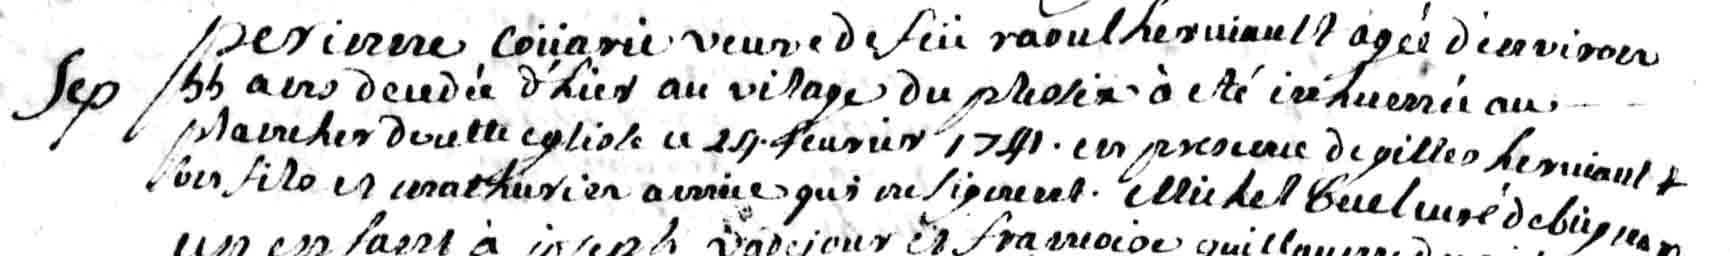 perinne coüarie veuve de feü raoul herviault agée d'environ
Sep 55 ans decedée d'hier au vilage du plesix à eté inhumée au
plancher de cette eglise ce 24. fevrier 1741. en presence de gilles herviault
son fils et mathurin qui ne signent. Michel curé de bignan
un enfant à joseph et francoise